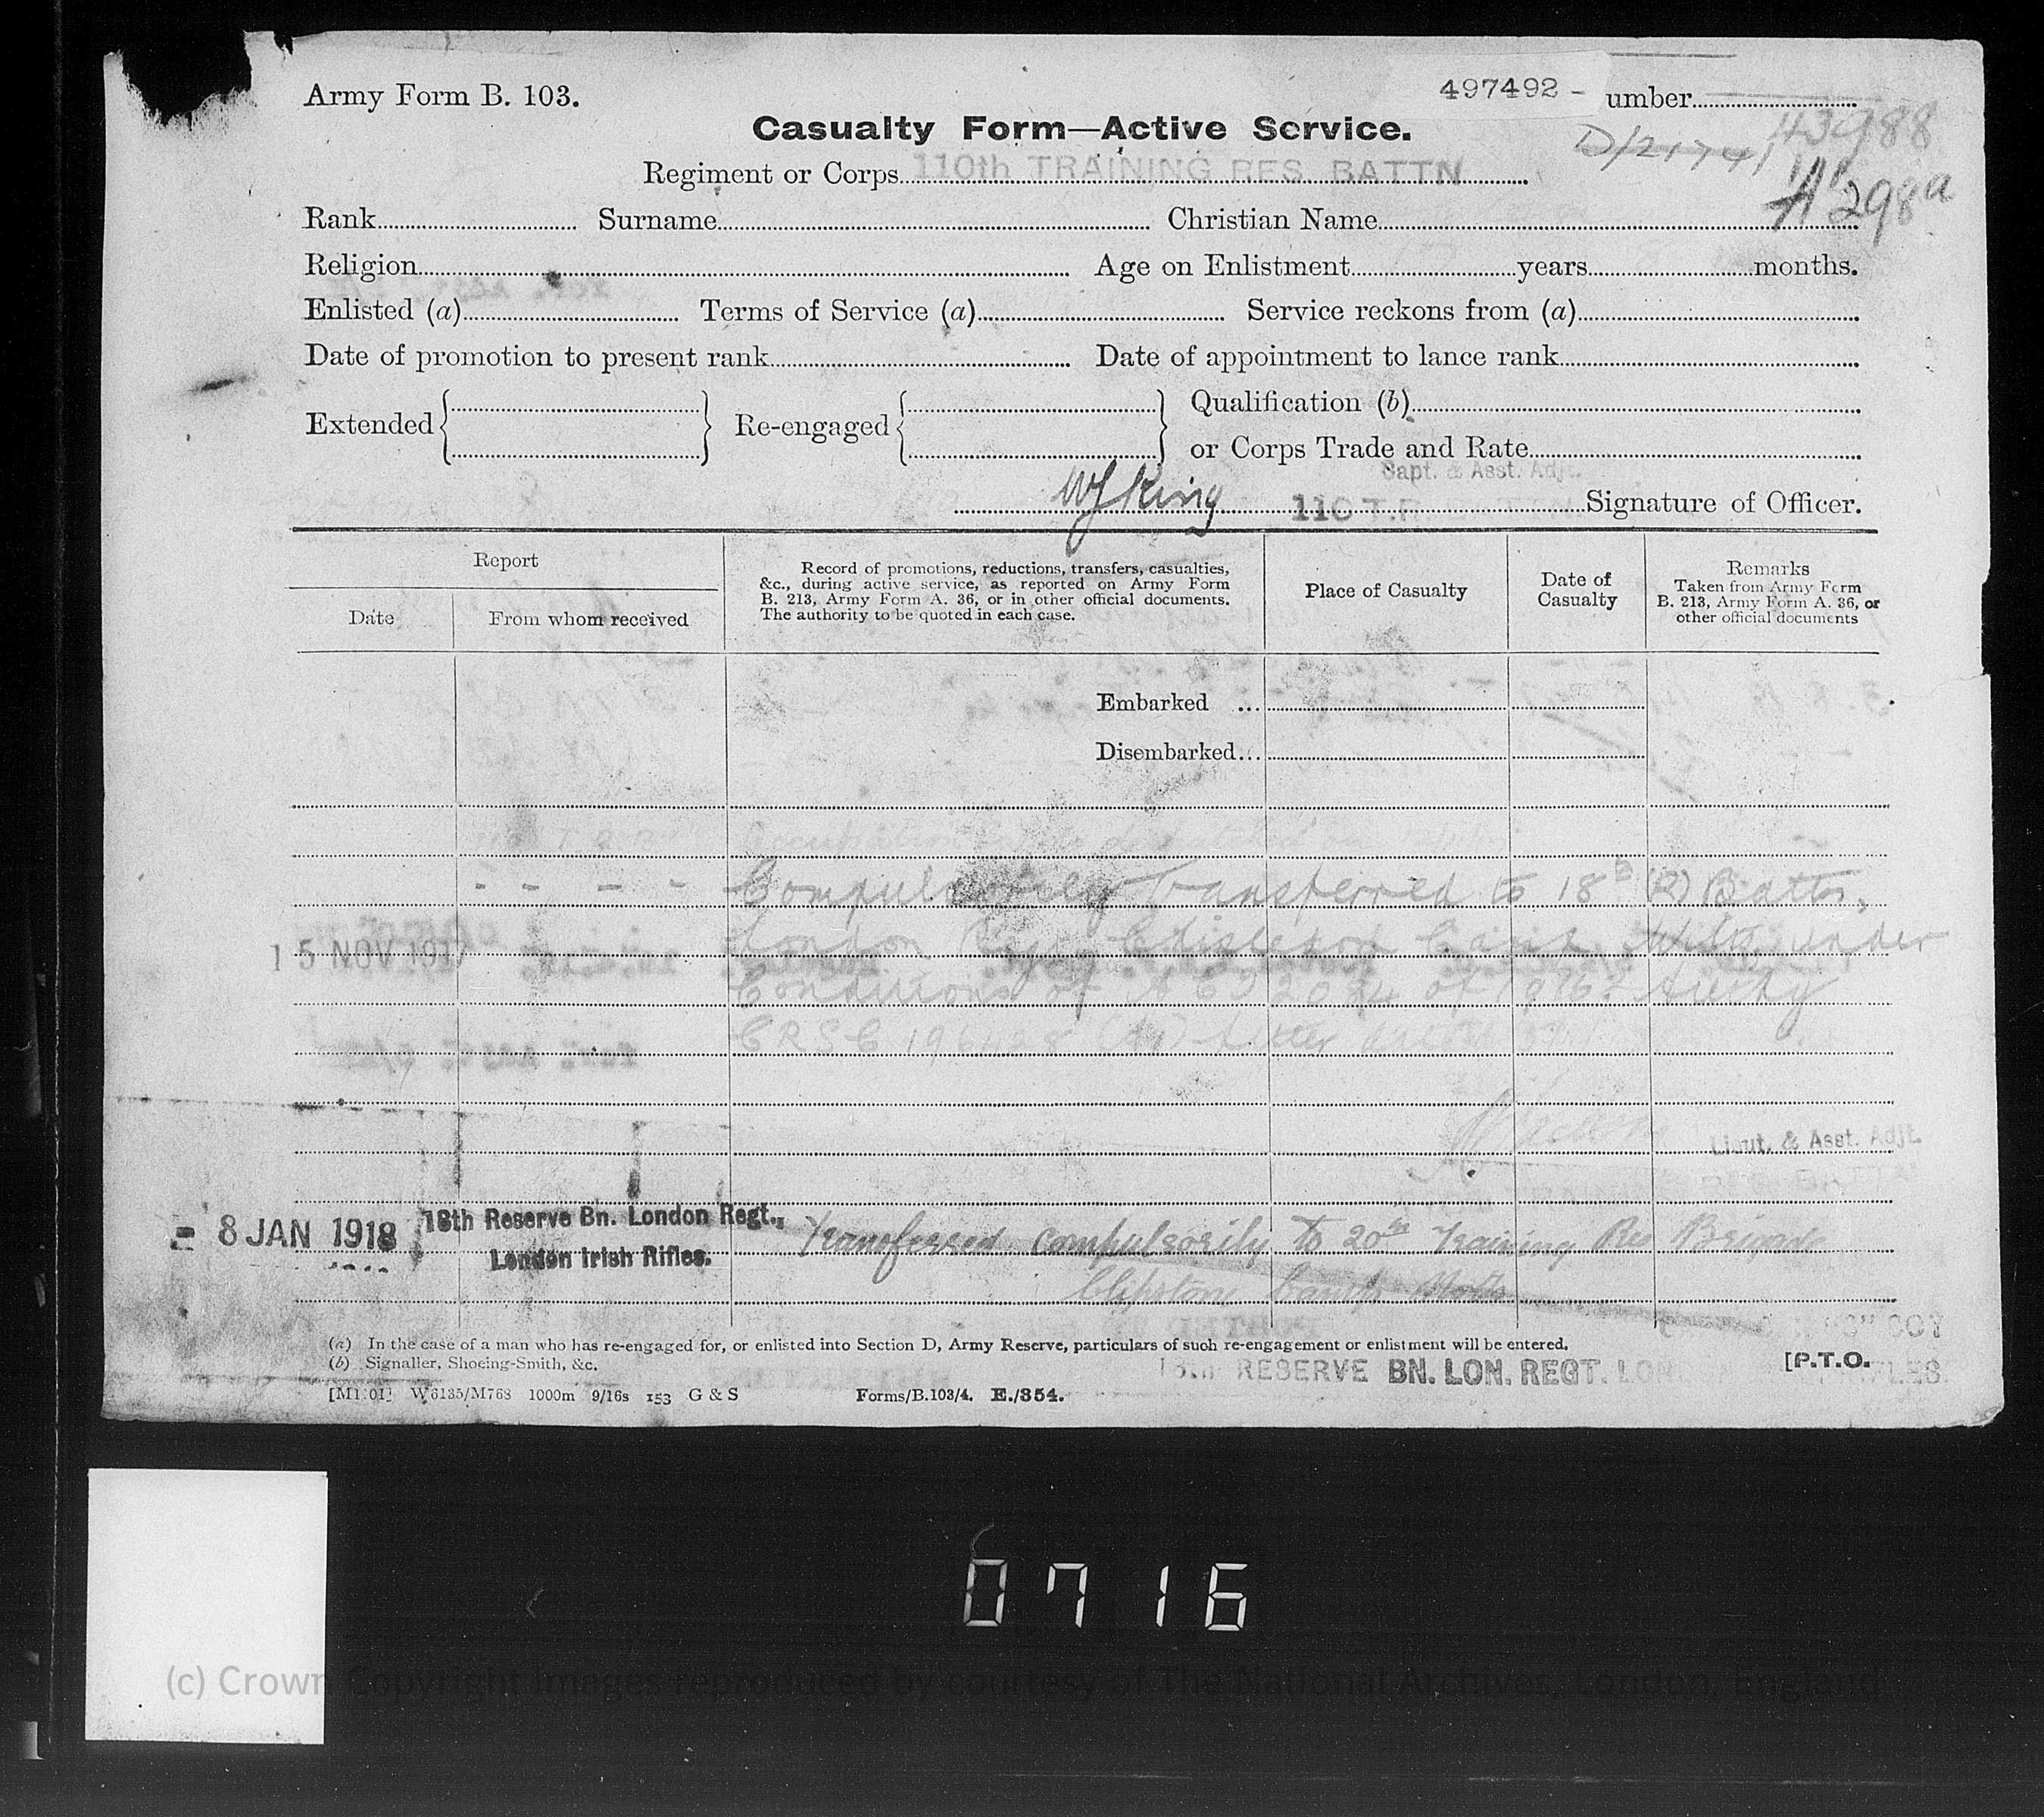 Army Form B. 103.
497492 - umber
Casualty Form—Active Service.
D/21741 43988
Regiment or Corps 110th TRAINING RES. BATTN
298a
Rank Surname Christian Name
Religion Age on Enlistment years months.
Enlisted (a) Terms of Service (a) Service reckons from (a)
Date of promotion to present rank Date of appointment to lance rank
Extended Re-engaged Qualification (b)
or Corps Trade and Rate
Capt. & Asst. Adjt.
King 110 T.R. Signature of Officer.
Report
Date
From whom received
Record of promotions, reductions, transfers, casualties,
&c., during active service, as reported on Army Form
B. 213, Army Form A. 36, or in other official documents.
The authority to be quoted in each case.
Place of Casualty
Date of
Casualty
Remarks
Taken from Army Form
B. 213, Army Form A. 36, or
other official documents
Embarked ...
Disembarked...
- - - - Compulsorily Transferred to 18th (R) Battn,
15 NOV 1917 London Regt Chisledon Camp, Wilts, under
Conditions of ACI 2094 of 1916? Authy
CRSC 196428 letter
Lieut. & Asst. Adjt.
- 8 JAN 1918 18th Reserve Bn. London Regt., Transferred compulsorily to 20th Training Res Brigade
London Irish Rifles.
Clipstone Camp Notts
(a) In the case of a man who has re-engaged for, or enlisted into Section D, Army Reserve, particulars of such re-engagement or enlistment will be entered.
(b) Signaller, Shoeing-Smith, &c.
18th RESERVE BN. LON. REGT. [P.T.O.
W6135/M768 1000m 9/16s 153 G & S Forms/B.103/4. E./354.
0716
(c) Crown Copyright Images reproduced by courtesy of The National Archives, London, England